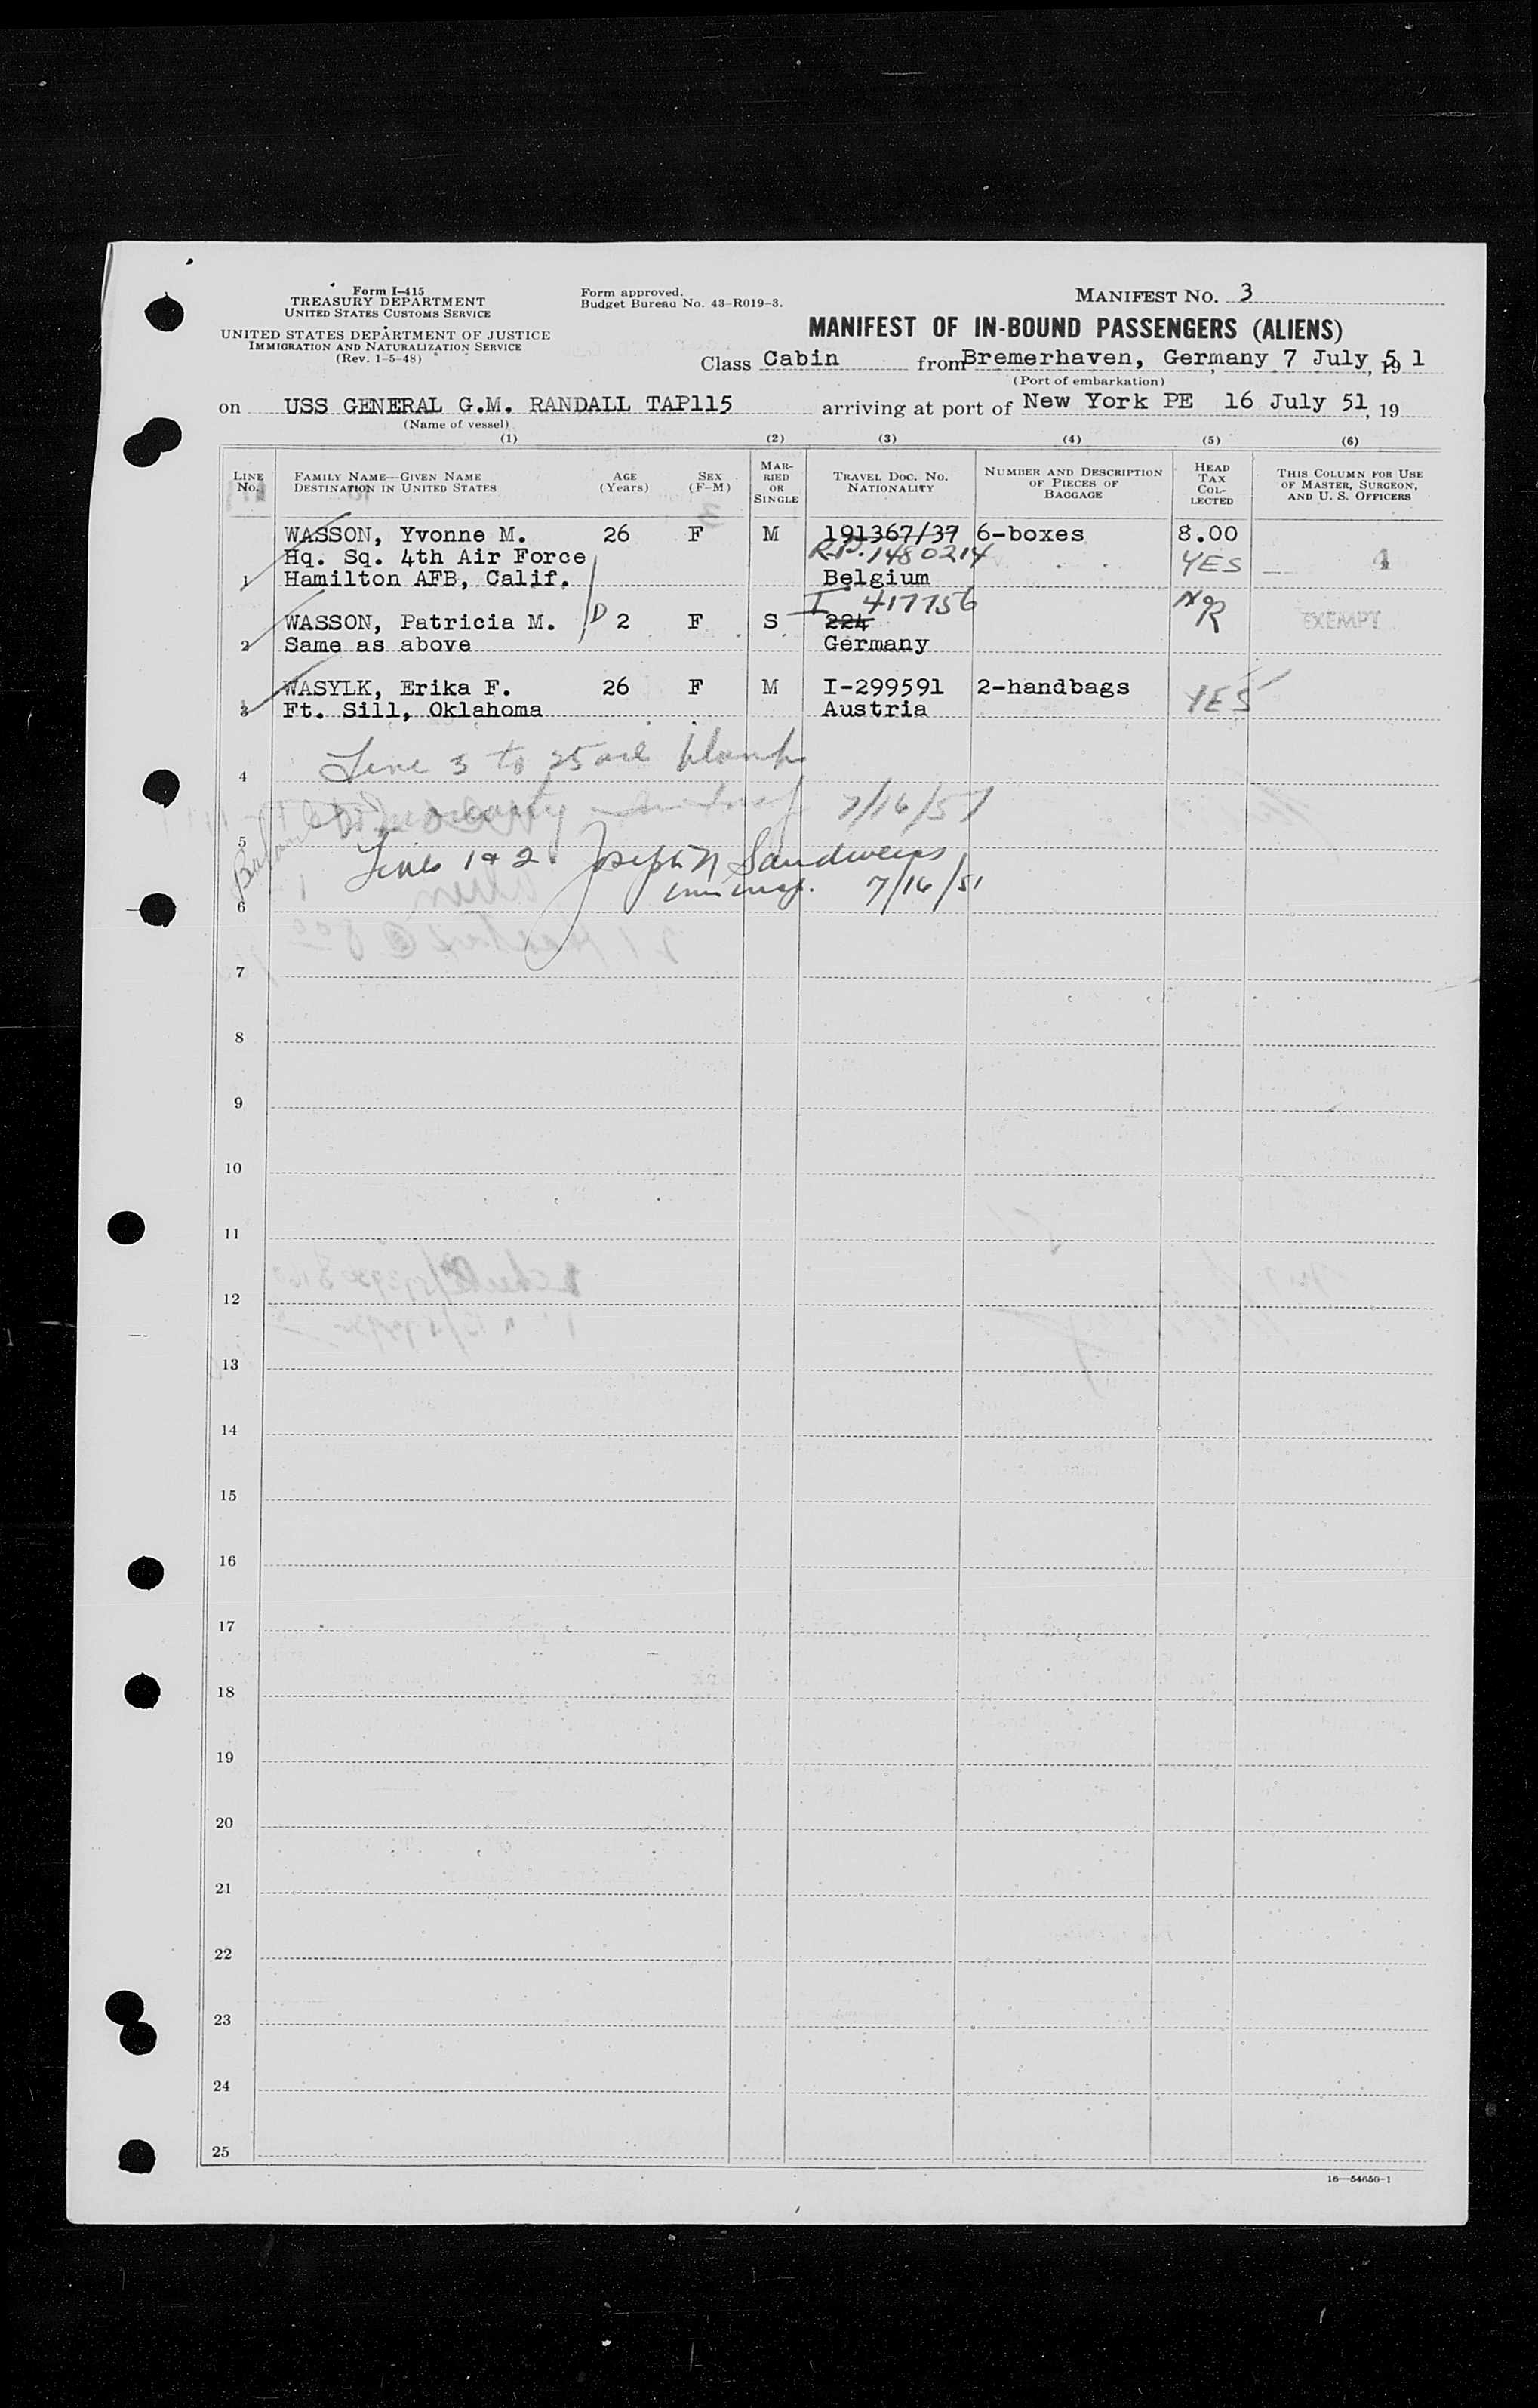 Form I-415
TREASURY DEPARTMENT
UNITED STATES CUSTOMS SERVICE
UNITED STATES DEPARTMENT OF JUSTICE
IMMIGRATION AND NATURALIZATION SERVICE
(Rev. 1-5-48)
Form approved.
Budget Bureau No. 43-R019-3.
MANIFEST NO. 3
MANIFEST OF IN-BOUND PASSENGERS (ALIENS)
Class Cabin from Bremerhaven, Germany 7 July, 19 51
(Port of embarkation)
on USS GENERAL G.M. RANDALL TAP115 arriving at port of New York PE 16 July 51, 19
(Name of vessel)
(1) (2) (3) (4) (5) (6)
LINE No. FAMILY NAME—GIVEN NAME DESTINATION IN UNITED STATES AGE (Years) SEX (F-M) MARRIED OR SINGLE TRAVEL DOC. NO. NATIONALITY NUMBER AND DESCRIPTION OF PIECES OF BAGGAGE HEAD TAX COLLECTED THIS COLUMN FOR USE OF MASTER, SURGEON, AND U. S. OFFICERS
WASSON, Yvonne M. 26 F M 191367/37 6-boxes 8.00
Hq. Sq. 4th Air Force R.P. 1480214 YES
1 Hamilton AFB, Calif. Belgium
I 417756
WASSON, Patricia M. D 2 F S 224 EXEMPT
2 Same as above Germany
WASYLK, Erika F. 26 F M I-299591 2-handbags YES
3 Ft. Sill, Oklahoma Austria
Line 3 to 25 are blank
4
7/16/51
5
Lines 1 & 2. Joseph N Sandweiss
Imm insp. 7/16/51
6
7
8
9
10
11
12
13
14
15
16
17
18
19
20
21
22
23
24
25
16—54650-1